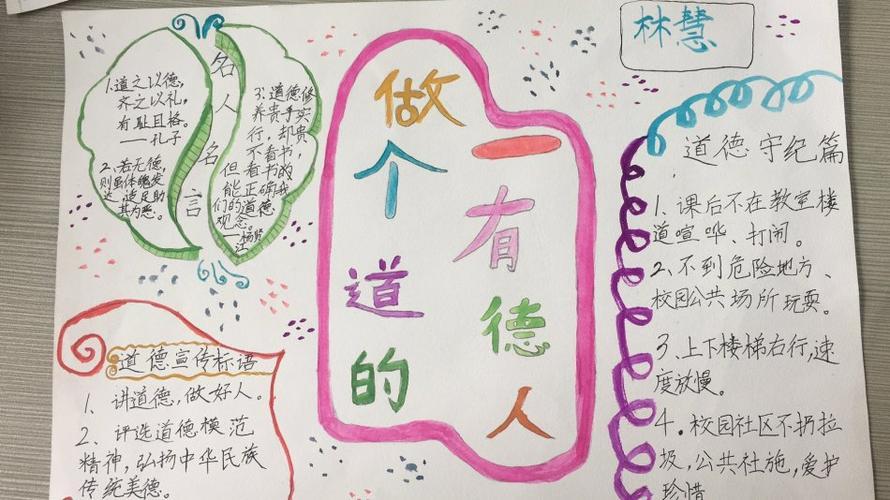 名人名言
1.道之以德,
齐之以礼,
有耻且格。
——孔子
2、若无德,
则虽体魄发
达,适足助
其为恶。
3:道德修
养贵手实
行,却贵
不看书,
但看书的
能正确我
们的道德
观念。
——杨贤
江
做一
个有
道德
的人
林慧
道德守纪篇
1、课后不在教室楼
道喧哗、打闹。
2、不到危险地方、
校园公共场所玩耍。
3、上下楼梯右行,速
度放慢。
4.校园社区不扔垃
圾,公共社施,爱护
珍惜
道德宣传标语
1、讲道德,做好人。
2、评选道德模范
精神,弘扬中华民族
传统美德。